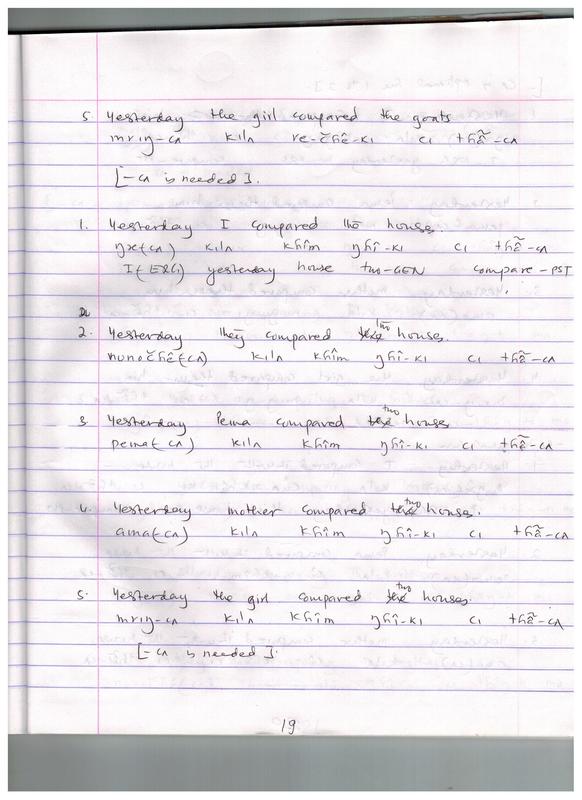 5. Yesterday the girl compared the goats
mrıŋ-cʌ kilʌ re-c̆hê-kı cı thẽ̂-cʌ
[-cʌ is needed].
1. Yesterday I compared the houses
ŋx(cʌ) kilʌ khîm ŋhî-kı cı thẽ̂-cʌ
I(ERG) yesterday house two-GEN compare-PST
2. Yesterday they compared two houses.
nunc̆hê(-cʌ) kilʌ khîm ŋhî-kı cı thẽ̂-cʌ
3. Yesterday Pema compared two houses
pema(-cʌ) kilʌ khîm ŋhî-kı cı thẽ̂-cʌ
4. Yesterday mother compared two houses.
ama(-cʌ) kilʌ khîm ŋhî-kı cı thẽ̂-cʌ
5. Yesterday the girl compared two houses.
mrıŋ-cʌ kilʌ khîm ŋhî-kı cı thẽ̂-cʌ
[-cʌ is needed].
19